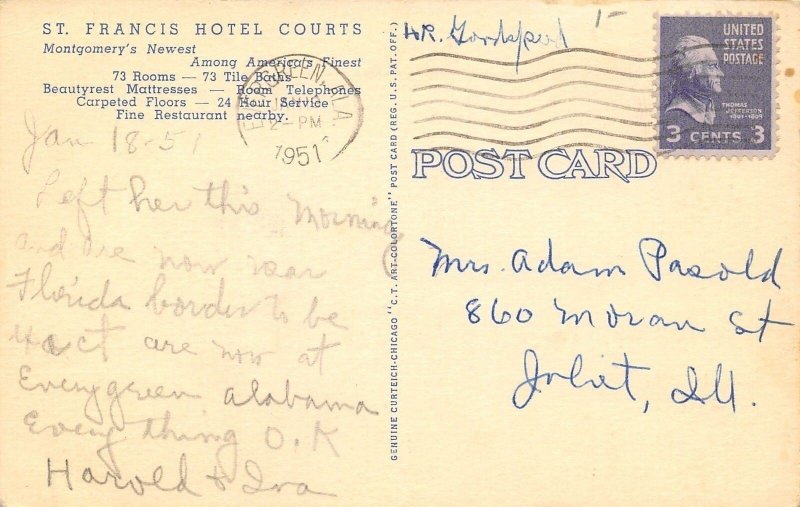 ST. FRANCIS HOTEL COURTS
Montgomery's Newest
Among America's Finest
73 Rooms — 73 Tile Baths
Beautyrest Mattresses — Room Telephones
Carpeted Floors — 24 Hour Service
Fine Restaurant nearby.
Jan 18-51
Left her this Morning
and are now near
Florida border to be
exact are now at
Everygreen Alabama
Every thing O.K
Harold & Iva
GENUINE CURTEICH-CHICAGO "C.T. ART-COLORTONE" POST CARD (REG. U.S. PAT. OFF.)
EVERGREEN, ALA.
2 - PM
1951
UNITED
STATES
POSTAGE
THOMAS
JEFFERSON
1801-1809
3 CENTS 3
POST CARD
Mrs. Adam Pasold
860 Moran St
Joliet, Ill.